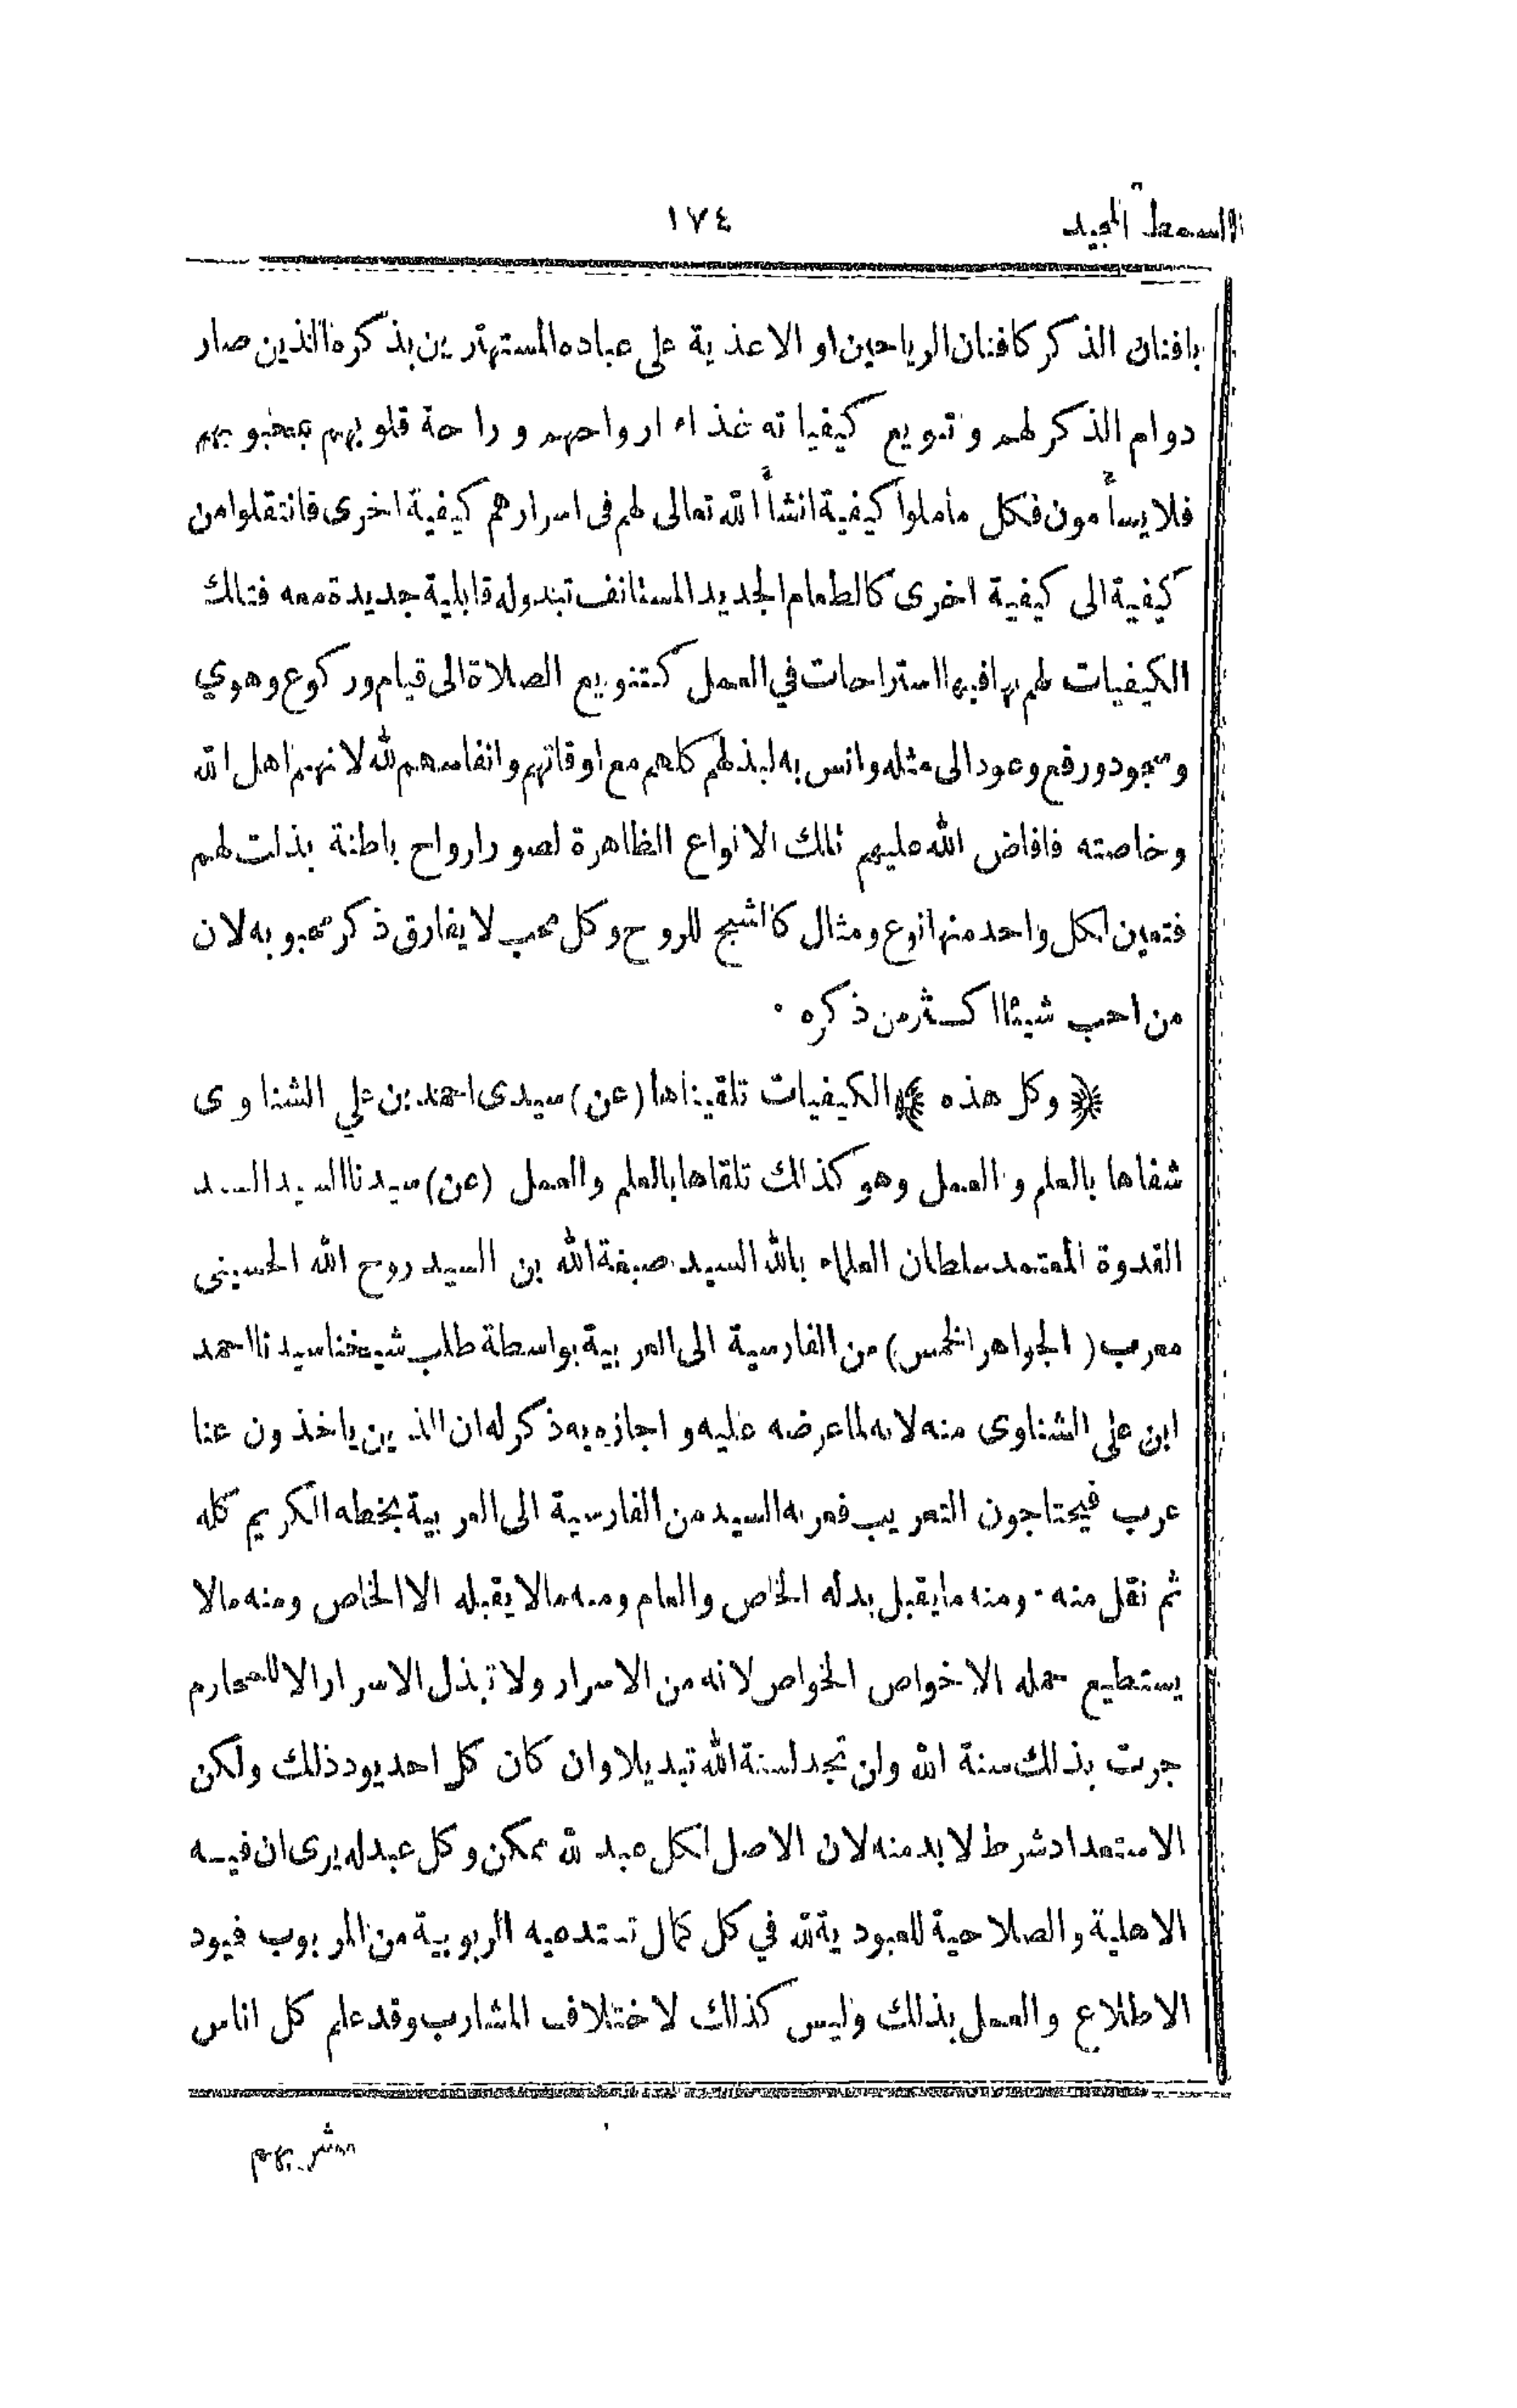 السمط المجيد ١٧٤
بافنان الذكر كافنان الرياحين او الاغذية على عباده المستهترين بذكره الذين صار
دوام الذكر لهم وتنويع كيفياته غذاء ارواحهم وراحة قلوبهم بمحبوبهم
فلا يسأمون فكل ماملوا كيفية انشأ الله تعالى لهم فى اسرارهم كيفية اخرى فانتقلوا من
كيفية الى كيفية اخرى كالطعام الجديد المستانف تبدوله قابلية جديدة معه فتلك
الكيفيات لهم بها فيها استراحات في العمل كتنويع الصلاة الى قيام وركوع وهوي
وسجود ورفع وعود الى مثله وانس به لبذلهم كلهم مع اوقاتهم وانفاسهم لله لانهم اهل الله
وخاصته فافاض الله عليهم تلك الانواع الظاهرة لصور ارواح باطنة بذلت لهم
فتعين لكل واحد منها نوع ومثال كالشبح للروح وكل محب لا يفارق ذكر محبوبه لان
من احب شيئا اكثر من ذكره ٠
﴿ وكل هذه ﴾ الكيفيات تلقيناها (عن) سيدى احمد بن علي الشناوى
شفاها بالعلم والعمل وهو كذلك تلقاها بالعلم والعمل (عن) سيدنا السيد السند
القدوة المعتمد سلطان العلماء بالله السيد صبغة الله بن السيد روح الله الحسينى
معرب (الجواهر الخمس) من الفارسية الى العربية بواسطة طلب شيخنا سيدنا احمد
ابن على الشناوى منه لانه لما عرضه عليه واجازه به ذكر له ان الذين ياخذون عنا
عرب فيحتاجون التعريب فعربه السيد من الفارسية الى العربية بخطه الكريم كله
ثم نقل منه ٠ ومنه ما يقبل بدله الخاص والعام ومنه ما لا يقبله الا الخاص ومنه ما لا
يستطيع حمله الا خواص الخواص لانه من الاسرار ولا تبذل الاسرار الا للمحارم
جرت بذلك سنة الله ولن تجد لسنة الله تبديلا وان كان كل احد يود ذلك ولكن
الاستعداد شرط لا بد منه لان الاصل لكل عبد لله ممكن وكل عبد له يرى ان فيه
الاهلية والصلاحية للعبودية لله في كل كمال تستدعيه الربوبية من المربوب فيود
الاطلاع والعمل بذلك وليس كذلك لاختلاف المشارب وقد علم كل اناس
مشربهم